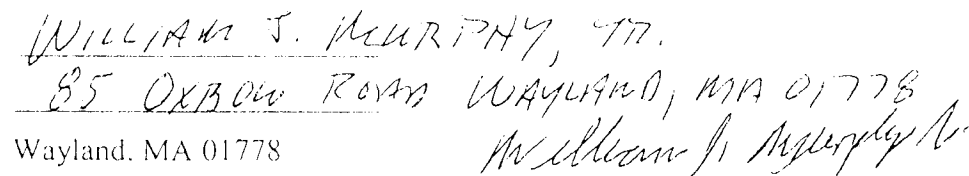 WILLIAM J. MURPHY, JR.
85 OXBOW ROAD WAYLAND, MA 01778
Wayland, MA 01778 William J. Murphy Jr.